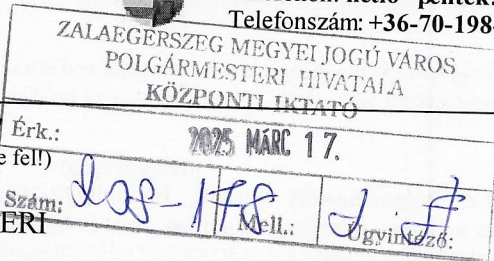 péntek:
Telefonszám: +36-70-198-
ZALAEGERSZEG MEGYEI JOGÚ VÁROS
POLGÁRMESTERI HIVATALA
KÖZPONTI IKTATÓ
Érk.: 2025 MÁRC 17.
e fel!)
Szám: 208-178 Mell.: Ügyintéző:
ERI